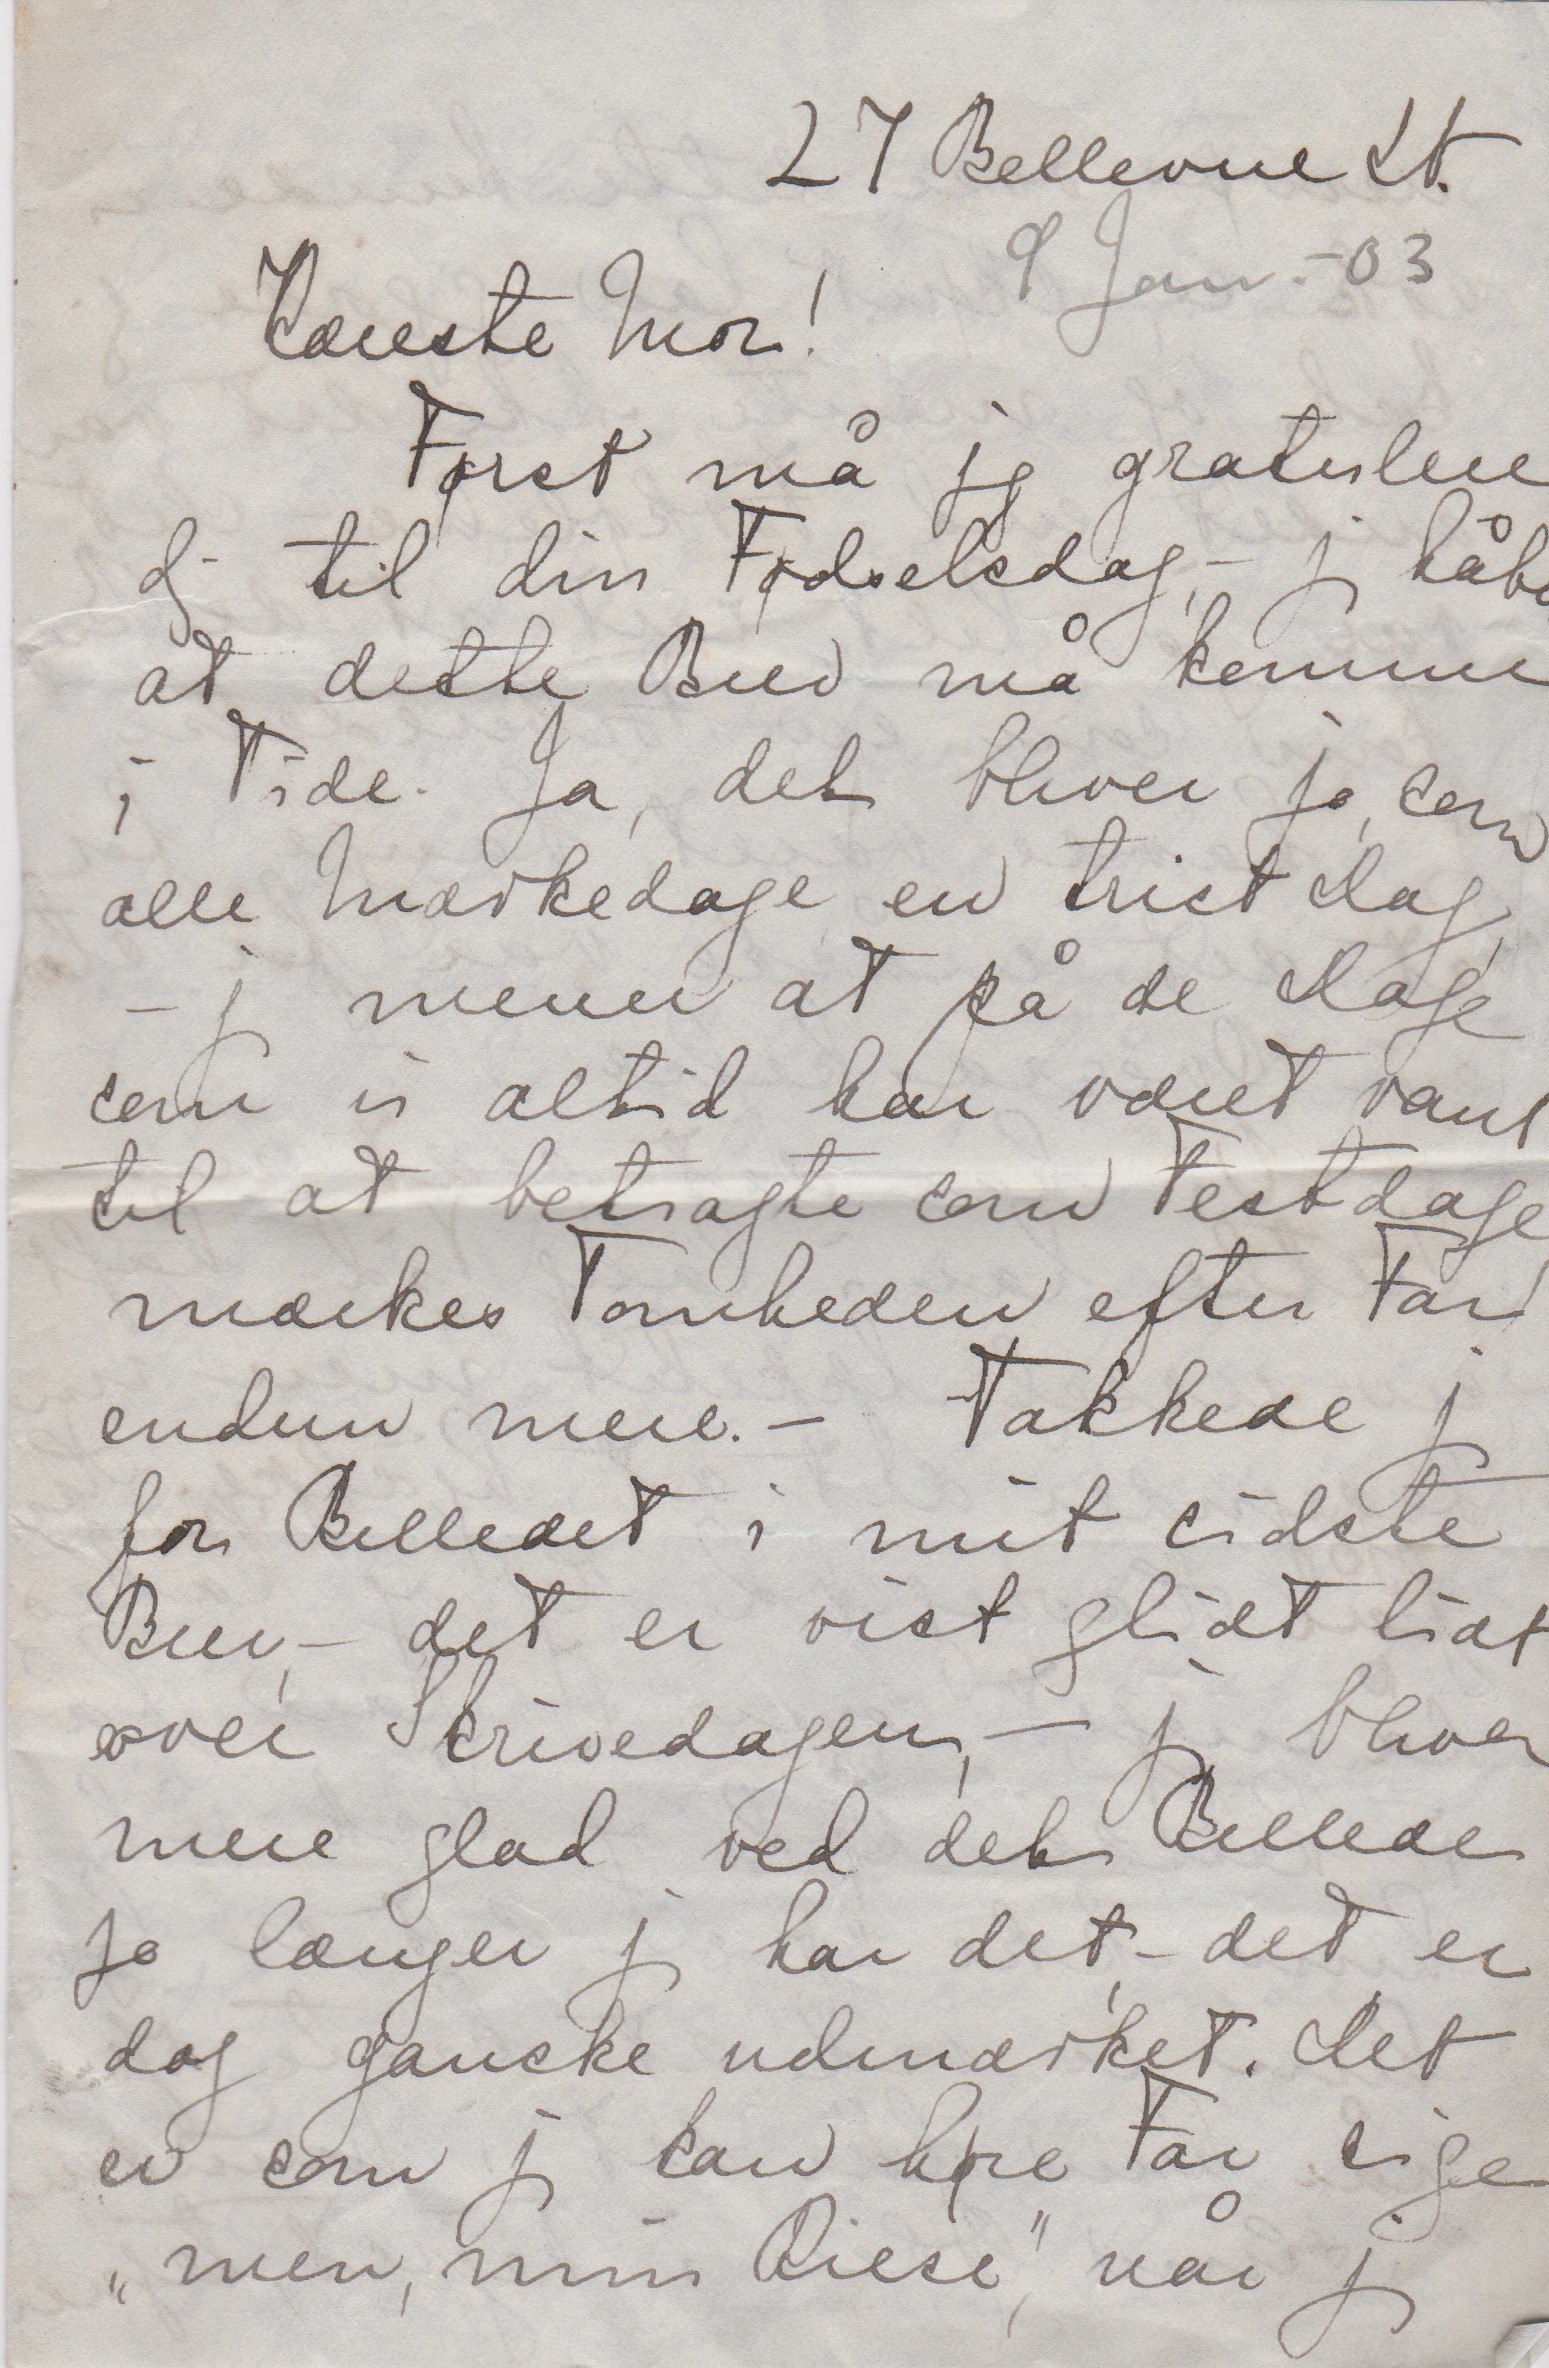 27 Bellevue St.
9 Jan. -03
Kæreste Mor!
Først må jg gratulere
dj til din Fødselsdag, - j håbe
at dette Brev må komme
i Tide. Ja, det bliver jo, som
alle Mærkedage en trist Dag,
- j mener at på de Dage
som vi altid har været vant
til at betragte som Festdage
mærkes Tomheden efter Far
endnu mere. - Takkede j
for Billedet i mit sidste
Brev, - det er vist glidt lidt
over Skrivedagen, - j bliver
mere glad ved det Billede
jo længer j har det, - det er
dog ganske udmærket. Det
er som j kan høre Far sige
„men, min Diese", når j